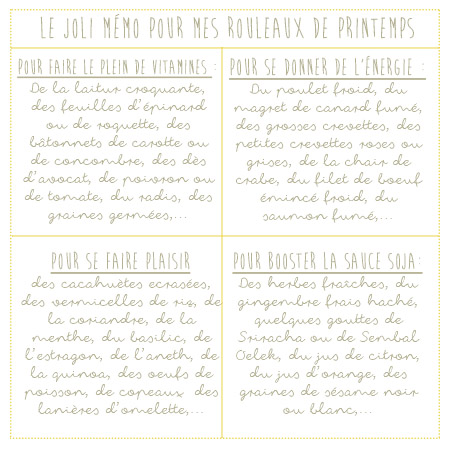 LE JOLI MÉMO POUR MES ROULEAUX DE PRINTEMPS
POUR FAIRE LE PLEIN DE VITAMINES :
De la laitur croquante,
des feuilles d'épinard
ou de roquette, des
bâtonnets de carotte ou
de concombre, des dès
d'avocat, de poivron ou
de tomate, du radis, des
graines germées,...
POUR SE DONNER DE L'ÉNERGIE :
Du poulet froid, du
magret de canard fumé,
des grosses crevettes, des
petites crevettes roses ou
grises, de la chair de
crabe, du filet de boeuf
émincé froid, du
saumon fumé,...
POUR SE FAIRE PLAISIR
des cacahuètes ecrasées,
des vermicelles de riz, de
la coriandre, de la
menthe, du basilic, de
l'estragon, de l'aneth, de
la quinoa, des oeufs de
poisson, de copeaux des
lanières d'omelette,...
POUR BOOSTER LA SAUCE SOJA:
Des herbes fraîches, du
gingembre frais haché,
quelques gouttes de
Sriracha ou de Sembal
Oelek, du jus de citron,
du jus d'orange, des
graines de sésame noir
ou blanc,...